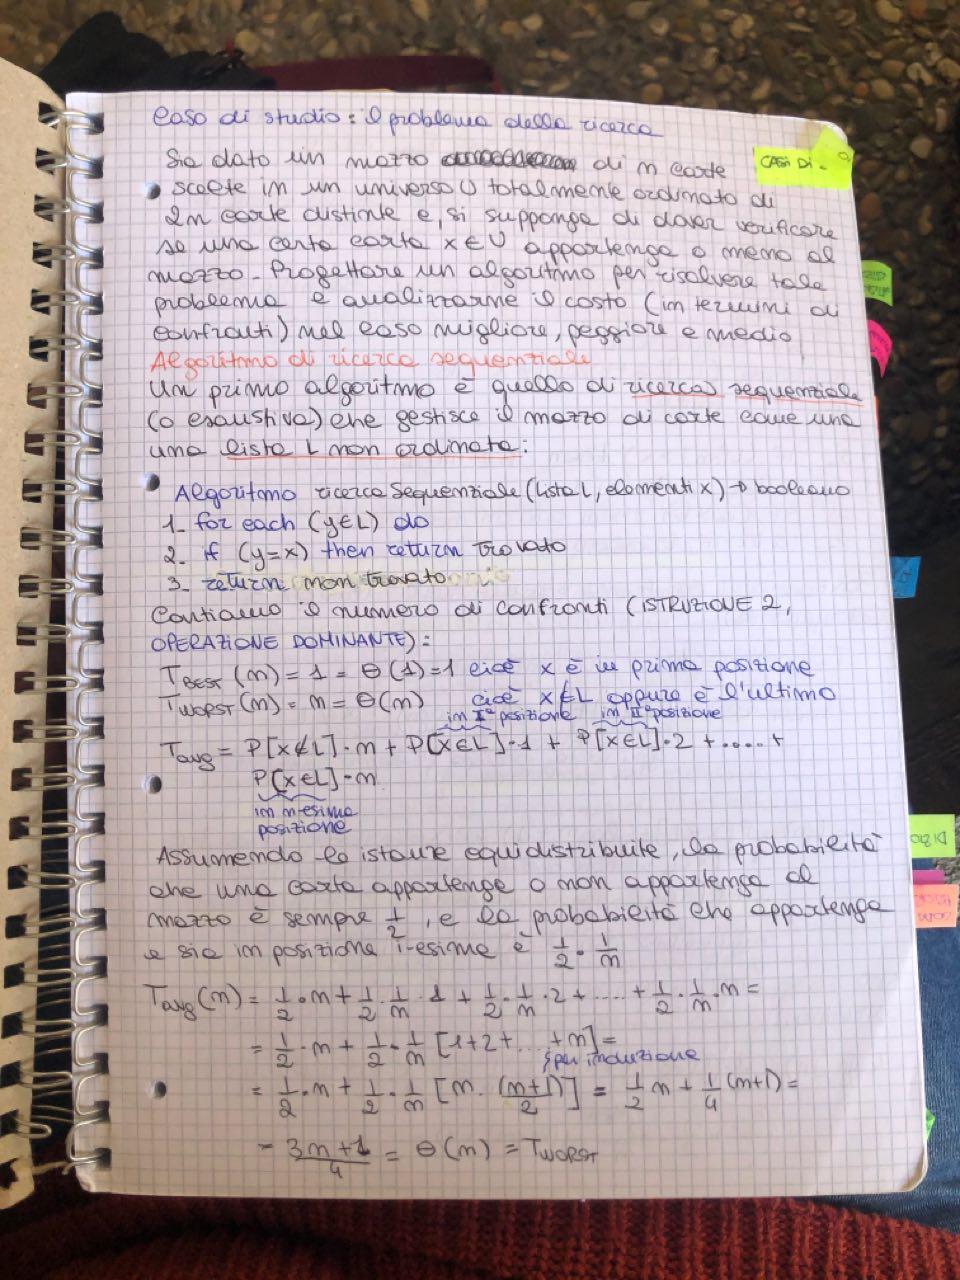 Caso di studio: il problema della ricerca
CASI DI -
Sia dato un mazzo di n carte
scelte in un universo U totalmente ordinato di
2n carte distinte e, si supponga di dover verificare
se una certa carta x∈U appartenga o meno al
mazzo - Progettare un algoritmo per risolvere tale
problema e analizzarne il costo (in termini di
confronti) nel caso migliore, peggiore e medio
Algoritmo di ricerca sequenziale
Un primo algoritmo è quello di ricerca sequenziale
(o esaustiva) che gestisce il mazzo di carte come una
una lista L non ordinata:
Algoritmo ricerca Sequenziale (Lista L, elementi x) → booleano
1- for each (y∈L) do
2- if (y=x) then return trovato
3- return non trovato
Contiamo il numero di confronti (ISTRUZIONE 2,
OPERAZIONE DOMINANTE):
T_BEST (n) = 1 = Θ(1) = 1 cioè x è in prima posizione
T_WORST (n) = n = Θ(n) cioè x∉L oppure è l'ultimo
in Iª posizione in IIª posizione
T_avg = P[x∉L]·n + P[x∈L]·1 + P[x∈L]·2 + ..... +
P[x∈L]·n
in n-esima
posizione
Assumendo le istanze equidistribuite, la probabilità
che una carta appartenga o non appartenga al
mazzo è sempre 1/2, e la probabilità che appartenga
e sia in posizione i-esima è 1/2 · 1/n
T_avg (n) = 1/2 · n + 1/2 · 1/n · 1 + 1/2 · 1/n · 2 + .... + 1/2 · 1/n · n =
= 1/2 · n + 1/2 · 1/n [1+2+... +n] =
per induzione
= 1/2 · n + 1/2 · 1/n [n · (n+1)/2] = 1/2 n + 1/4 (n+1) =
= 3n+1/4 = Θ(n) = T_WORST
DIZIO